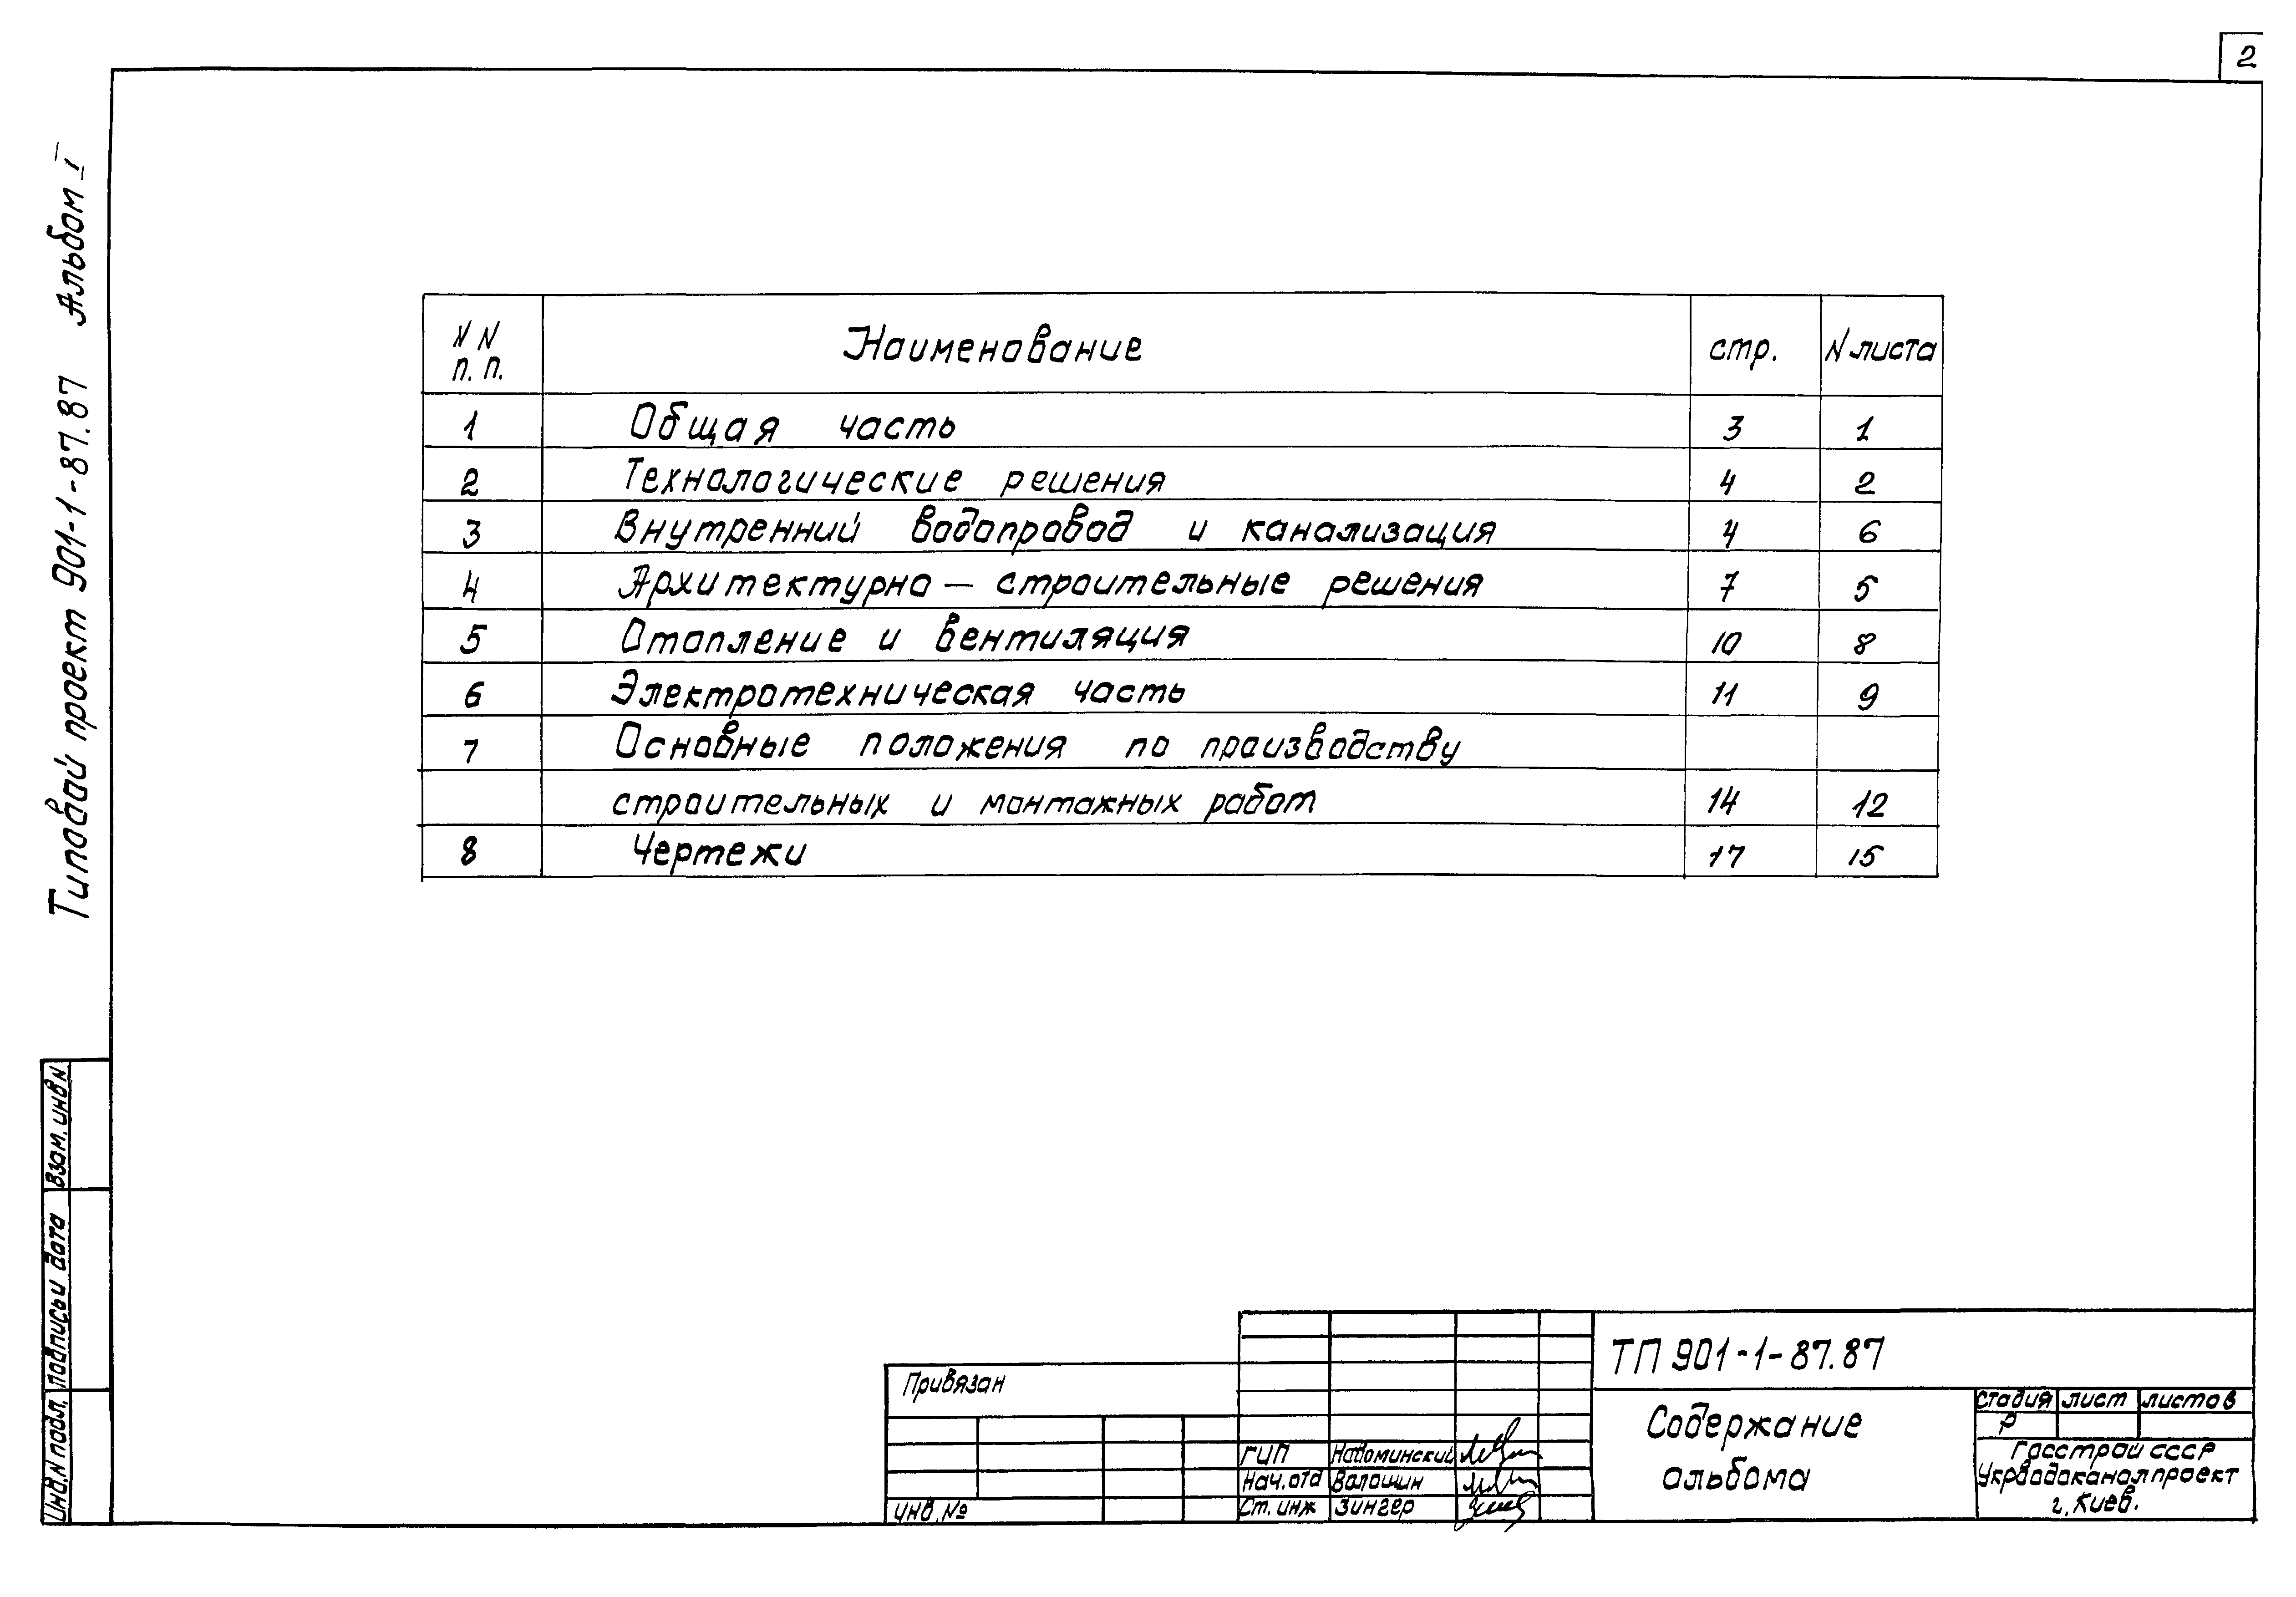 2
Типовой проект 901-1-87.87 Альбом I
N N п. п. Наименование стр. N листа
1 Общая часть 3 1
2 Технологические решения 4 2
3 Внутренний водопровод и канализация 4 6
4 Архитектурно — строительные решения 7 5
5 Отопление и вентиляция 10 8
6 Электротехническая часть 11 9
7 Основные положения по производству
строительных и монтажных работ 14 12
8 Чертежи 17 15
Взам. инв N
Подпись и дата
Инв. N подл.
Привязан
Инв. №
ГИП
Нач. отд Волошин
Ст. инж Зингер
ТП 901-1-87.87
Содержание
альбома
стадия лист листов
Р
Госстрой СССР
Укрводоканалпроект
г. Киев.